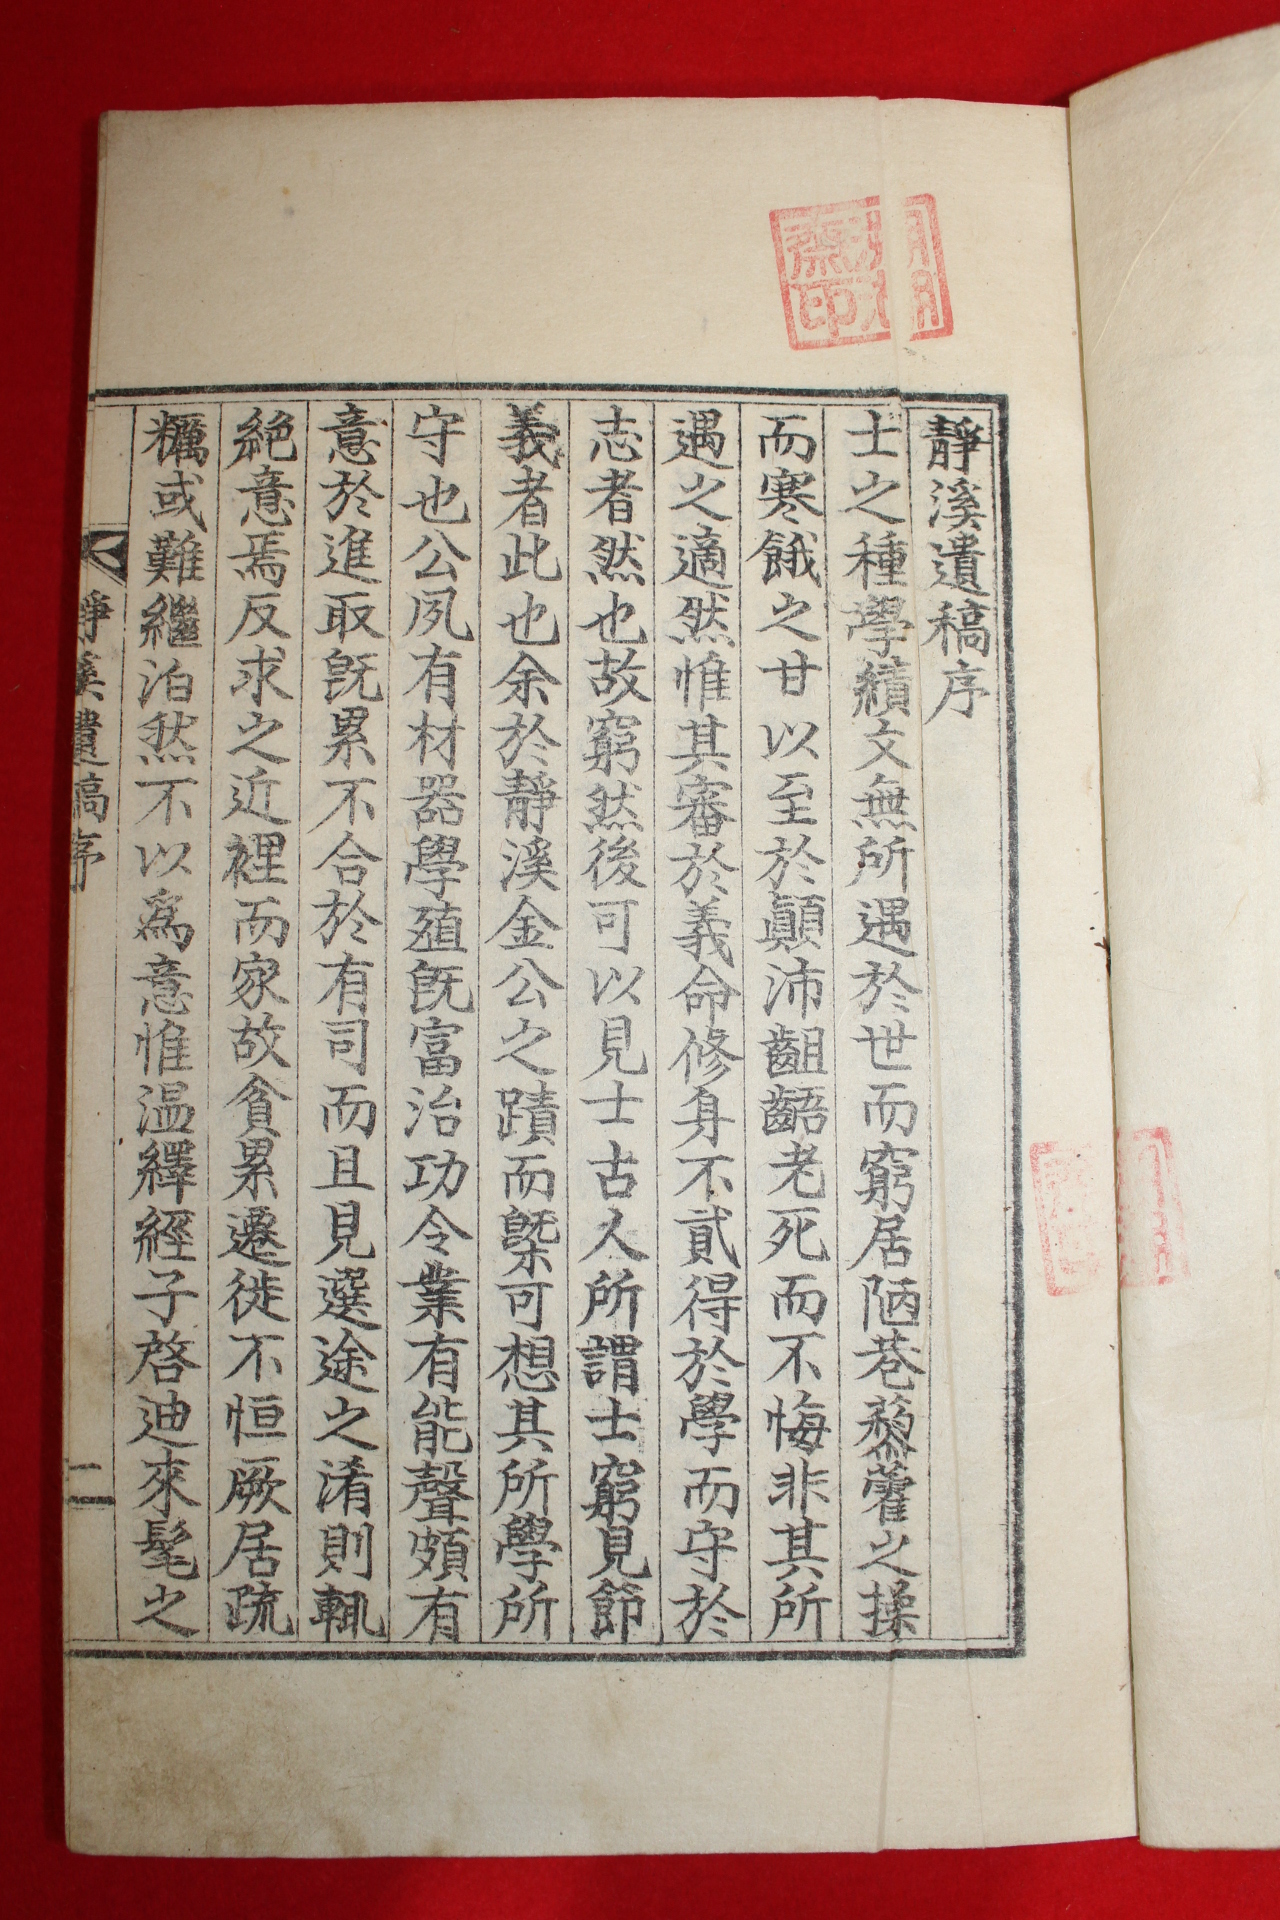 靜溪遺稿序
士之種學績文無所遇於世而窮居陋巷藜藿之操
而寒餓之甘以至於顛沛齟齬老死而不悔非其所
遇之適然惟其審於義命修身不貳得於學而守於
志者然也故窮然後可以見士古人所謂士窮見節
義者此也余於靜溪金公之蹟而槩可想其所學所
守也公夙有材器學殖旣富治功令業有能聲頗有
意於進取旣累不合於有司而且見選途之淆則輒
絶意焉反求之近裡而家故貧累遷徙不恒厥居疏
糲或難繼泊然不以爲意惟温繹經子啓迪來髦之
靜溪遺稿序
一